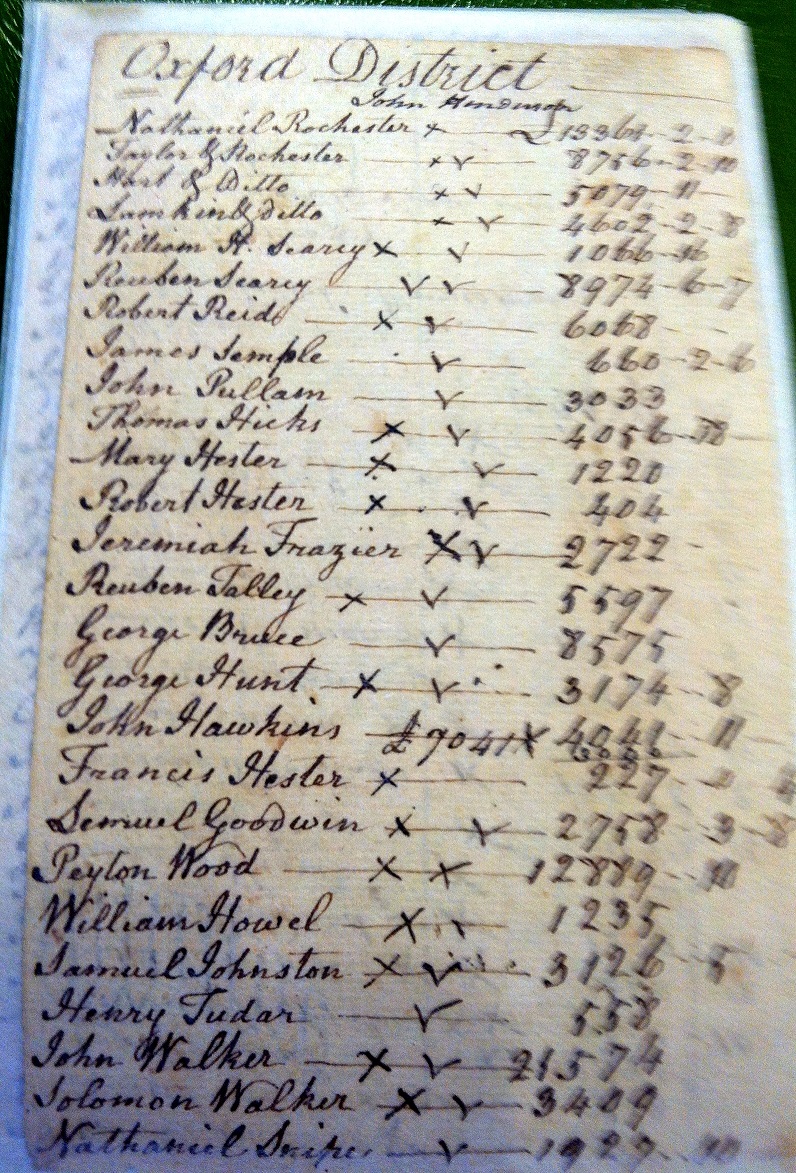 Oxford District
John Henderson
Nathaniel Rochester x £ 13364-2-11
Taylor & Rochester x √ 8756-2-10
Hart & Ditto x √ 5079-11
Lamkin & ditto x √ 4602-2-8
William H. Searcy x √ 1066-16
Reuben Searcy √ √ 8974-6-7
Robert Reid x √ 6068
James Semple √ 660-2-6
John Pullam √ 3033
Thomas Hicks x √ 4056-18
Mary Hester x √ 1220
Robert Hester x √ 404
Jeremiah Frazier x √ 2722
Reuben Talley x √ 5597
George Bruce √ 8575
George Hunt x √ 3174-8
John Hawkins £ 9041 x 4041-11
Francis Hester x 227
Semuel Goodwin x √ 2758-3-8
Peyton Wood x x 12889-10
William Howel x 1235
Samuel Johnston x √ 3126-5
Henry Tudar √ 558
John Walker x √ 21574
Solomon Walker x √ 3409
Nathaniel Snipes √ 1927-10